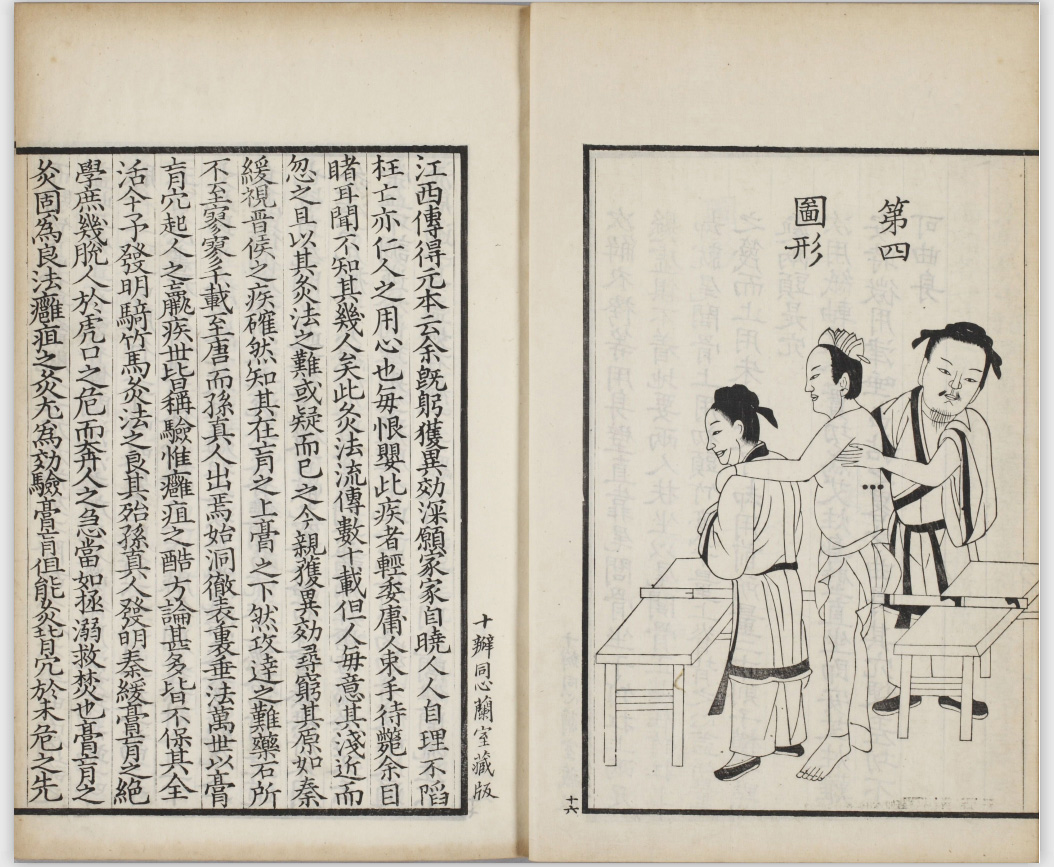 第四
圖形
十六
十瓣同心蘭室藏版
江西傳得元本云余旣躬獲異効深願家家自曉人人自理不陷
枉亡亦仁人之用心也每恨嬰此疾者輕委庸人束手待斃余目
睹耳聞不知其幾人矣此灸法流傳數十載但人每意其淺近而
忽之且以其灸法之難或疑而已之今親獲異効尋窮其原如秦
緩視晋侯之疾確然知其在肓之上膏之下然攻達之難藥石所
不至寥寥千載至唐而孫真人出焉始洞徹表裏垂法萬世以膏
肓穴起人之羸疾世皆稱驗惟癰疽之酷方論甚多皆不保其全
活今予發明騎竹馬灸法之良其殆孫真人發明秦緩膏肓之絶
學庶幾脫人於虎口之危而奔人之急當如拯溺救焚也膏肓之
灸固為良法癰疽之灸尤為効驗膏肓但能灸背穴於未危之先